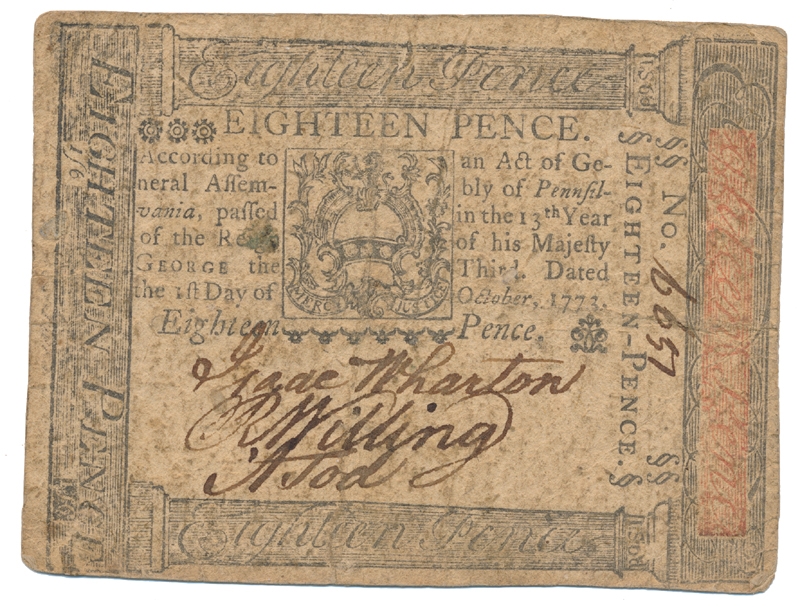 Eighteen Pence
EIGHTEEN PENCE.
According to an Act of Ge-
neral Aſſem- bly of Pennſil-
vania, paſſed in the 13th Year
of the of his Majeſty
GEORGE the Third. Dated
the 1ſt Day of October, 1773.
Eighteen Pence.
MERCY JUSTICE
Isaac Wharton
R Willing
A Tod
Eighteen Pence
EIGHTEEN PENCE
1/6
1S6d
§§ No. 6657 §§
§ EIGHTEEN-PENCE. §
1S6d